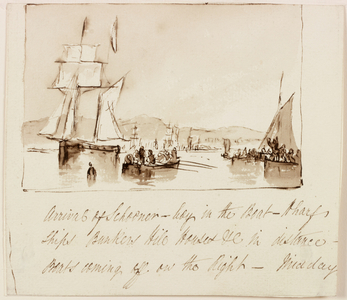 Arrival of Schooner – lay in the Boat – Wharf,
Ships Bunkers Hill Houses &C in distance –
Boats coming off. on the Right –